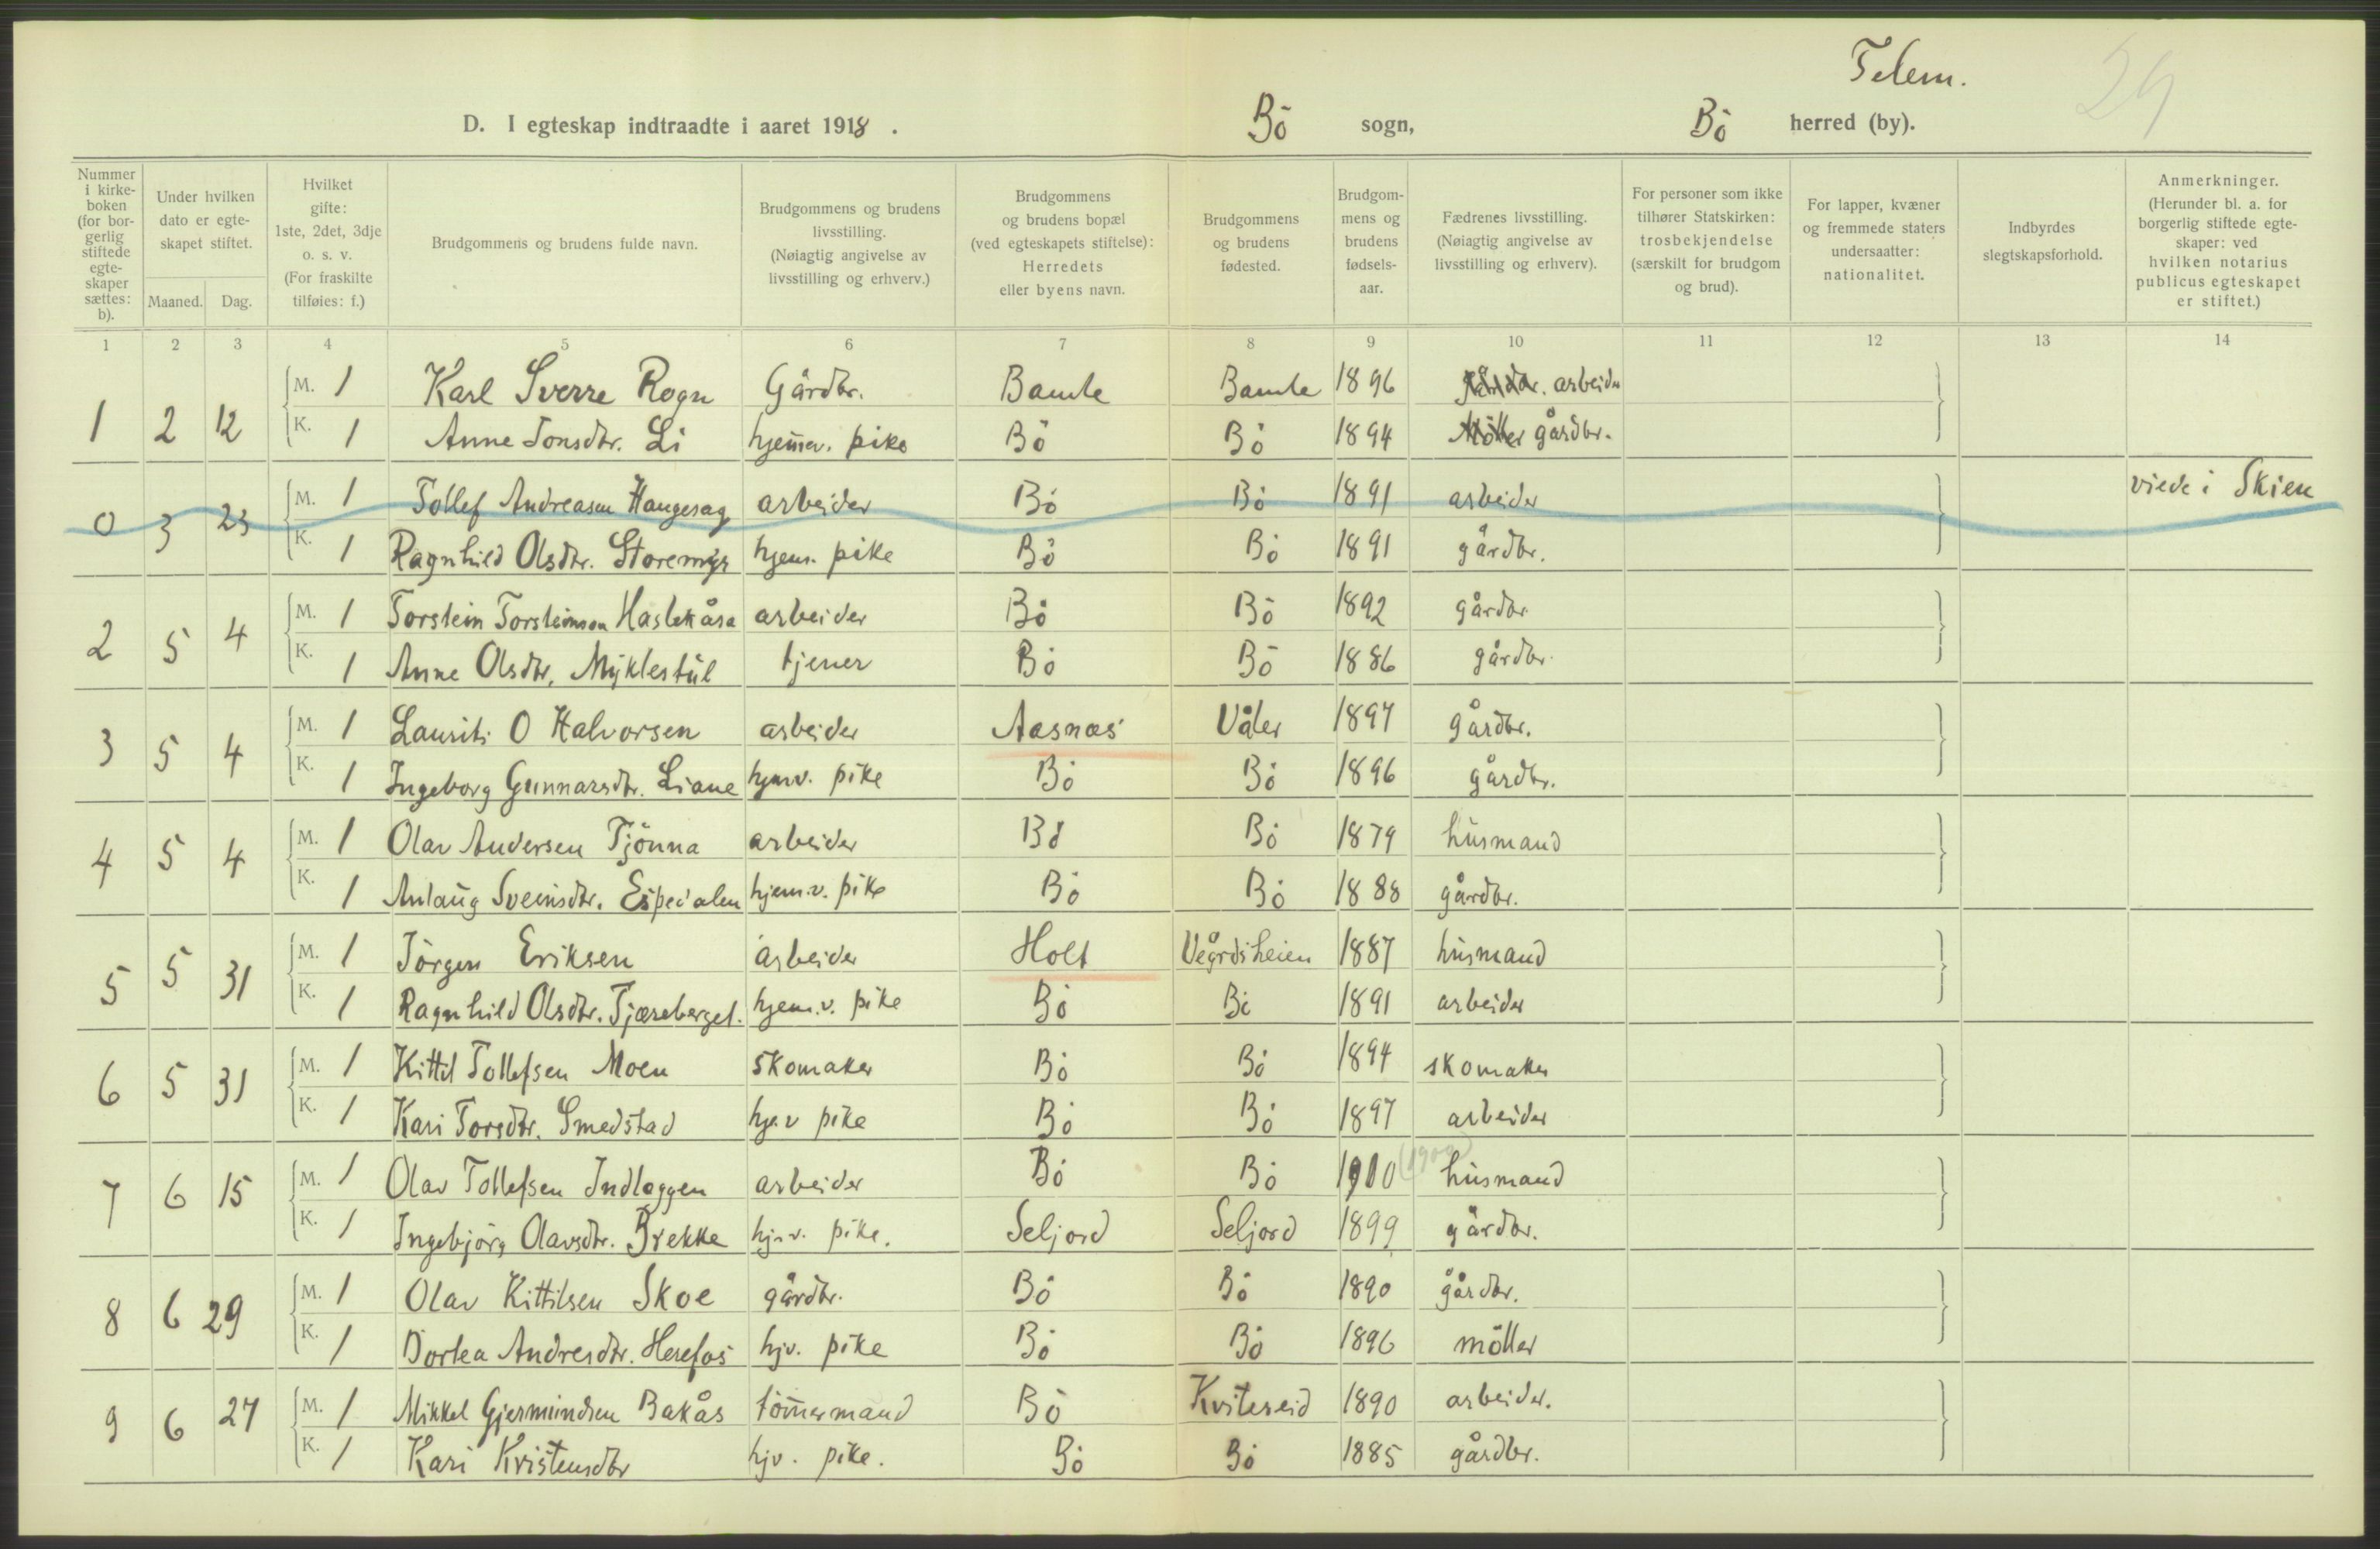 Telem.
24
D. I egteskap indtraadte i aaret 1918. Bö sogn, Bö herred (by).
Nummer i kirkeboken (for borgerlig stiftede egteskaper sættes: b). Under hvilken dato er egteskapet stiftet. Maaned. Dag. Hvilket gifte: 1ste, 2det, 3dje o. s. v. (For fraskilte tilføies: f.) Brudgommens og brudens fulde navn. Brudgommens og brudens livsstilling. (Nøiagtig angivelse av livsstilling og erhverv.) Brudgommens og brudens bopæl (ved egteskapets stiftelse): Herredets eller byens navn. Brudgommens og brudens fødested. Brudgommens og brudens fødselsaar. Fædrenes livsstilling. (Nøiagtig angivelse av livsstilling og erhverv). For personer som ikke tilhører Statskirken: trosbekjendelse (særskilt for brudgom og brud). For lapper, kvæner og fremmede staters undersaatter: nationalitet. Indbyrdes slegtskapsforhold. Anmerkninger. (Herunder bl. a. for borgerlig stiftede egteskaper: ved hvilken notarius publicus egteskapet er stiftet.)
1 2 3 4 5 6 7 8 9 10 11 12 13 14
1 2 12 M. 1 Karl Sverre Rogn Gårdbr. Bamle Bamle 1896 arbeider
K. 1 Anne Jonsdtr. Li hjemev. pike Bö Bö 1894 Möller gårdbr.
0 3 23 M. 1 Tollef Andreasen Haugesag arbeider Bö Bö 1891 arbeider viede i Skien
K. 1 Ragnhild Olsdtr. Storemyr hjem. pike Bö Bö 1891 gårdbr.
2 5 4 M. 1 Torstein Torsteinson Haslekåsa arbeider Bö Bö 1892 gårdbr
K. 1 Anne Olsdtr. Myklestül tjener Bö Bö 1886 gårdbr.
3 5 4 M. 1 Laurits O Halvorsen arbeider Aasnæs Våler 1897 gårdbr.
K. 1 Ingeborg Gunnarsdtr. Liane hjemv. pike Bö Bö 1896 gårdbr.
4 5 4 M. 1 Olav Andersen Tjönna arbeider Bö Bö 1879 husmand
K. 1 Anlaug Sveinsdtr. Espedalen hjem.v. pike Bö Bö 1888 gårdbr.
5 5 31 M. 1 Jörgen Eriksen arbeider Holt Vegårdsheien 1887 husmand
K. 1 Ragnhild Olsdtr. Tjæreberget. hjem.v. pike Bö Bö 1891 arbeider
6 5 31 M. 1 Kittil Tollefsen Moen skomaker Bö Bö 1894 skomaker
K. 1 Kari Torsdtr. Smedstad hje.v pike Bö Bö 1897 arbeider
7 6 15 M. 1 Olav Tollefsen Indlæggen arbeider Bö Bö 1900 (1900) husmand
K. 1 Ingebjörg Olavsdtr. Brekke hj.v. pike. Seljord Seljord 1899 gårdbr.
8 6 29 M. 1 Olav Kittilsen Skoe gårdbr. Bö Bö 1890 gårdbr.
K. 1 Dortea Andresdtr. Herefos hjv. pike Bö Bö 1896 möller
9 6 27 M. 1 Mikkel Gjermundsen Bakås tömmermand Bö Kviteseid 1890 arbeider.
K. 1 Kari Kristensdtr hjv. pike. Bö Bö 1885 gårdbr.